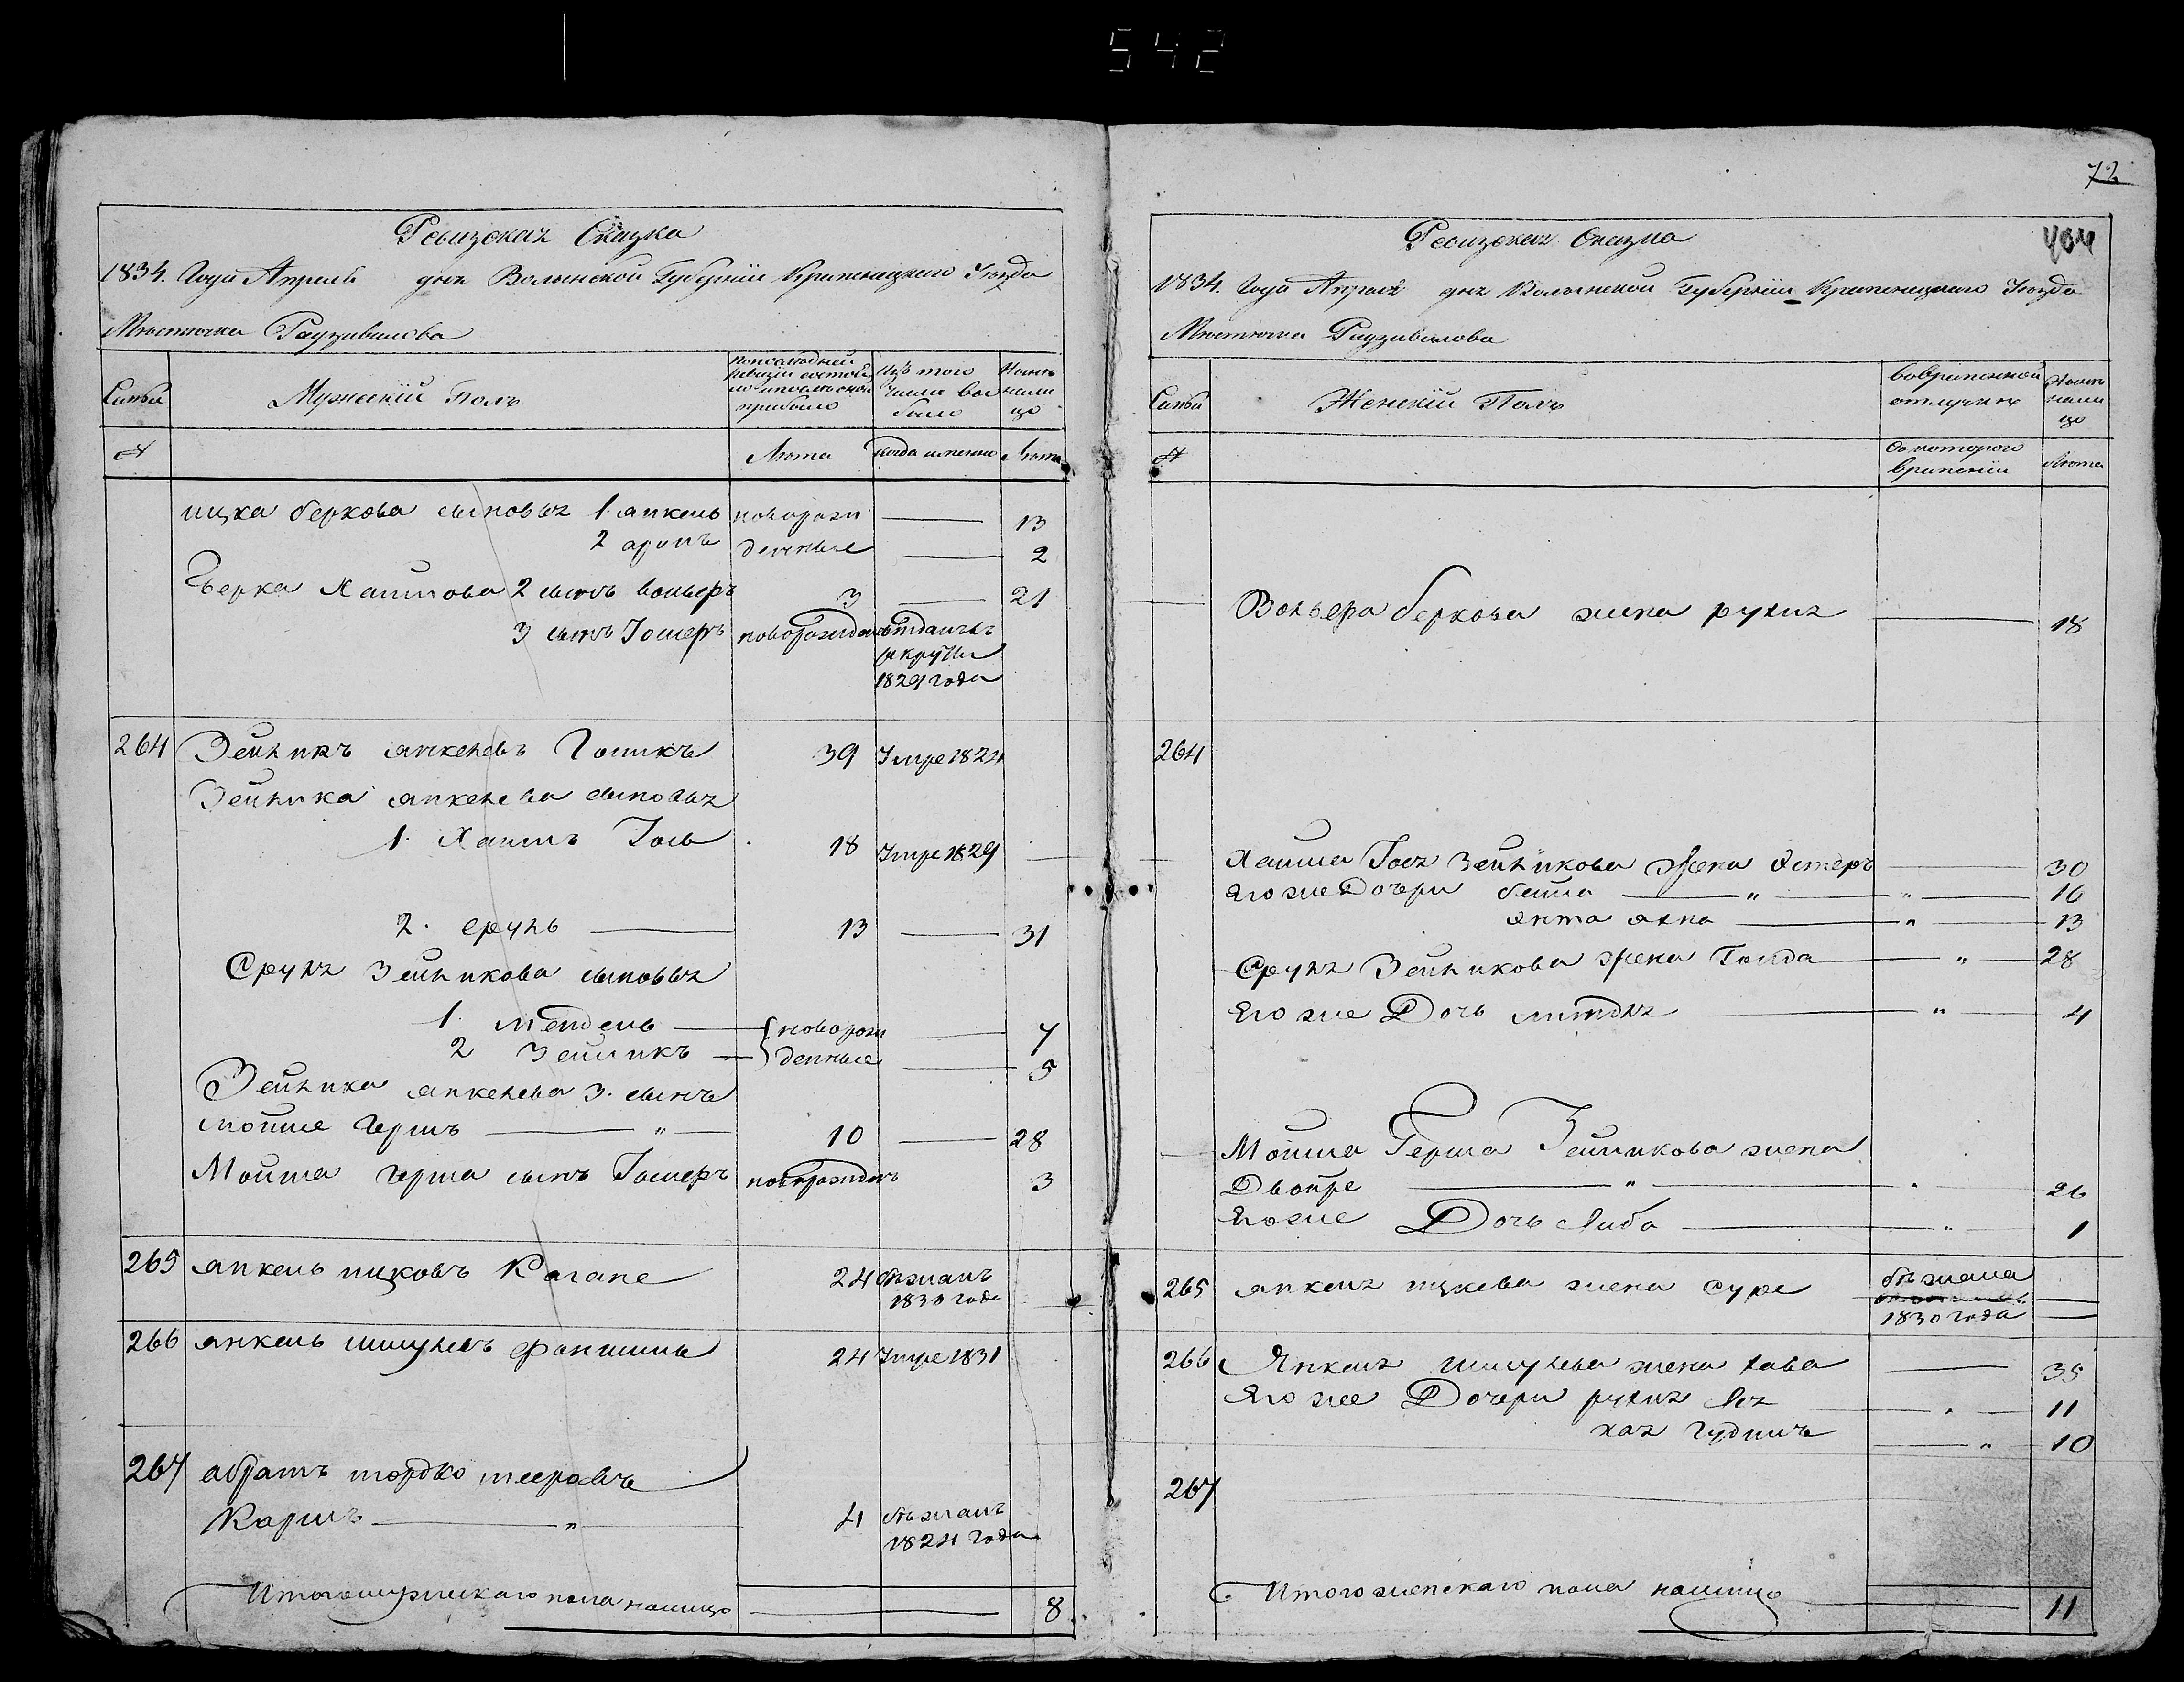 542
72
404
Ревизская Сказка
1834. Года Апреля дня Волынской Губернии Кременецкого Уезда
Местечка Радзивилова
Семьи
Мужеский Полъ
По последней ревизии состояло и после оной прибыло
Изъ того числа выбыло
Ныне на лицо
№
Лета
Когда именно
Лета
ицка беркова сыновья 1 янкель новорож 13
2 аронъ денные 2
Берка Хаимова 2 сынъ вольфъ 3 21
3 сынъ Иосифъ новорожден отданъ въ
рекруты
1829 года
264 Зейликъ янкелевъ Гоникъ 39 Умре 1824
Зейлика янкелева сыновья
1. Хаимъ Іось 18 Умре 1829
2. сруль 13 31
Сруля Зейликова сыновья
1. мендель новорож 7
2 Зейликъ денные 5
Зейлика янкелева 3. сынъ
мойше гершъ " 10 28
Мойша герша сынъ Иосифъ новорожденъ 3
265 янкель ицковъ Кагане 24 бежалъ
1830 года
266 янкель шмулевъ 24 Умре 1831
267 абрамъ мордко мееровъ
Кормъ " 4 бежалъ
1824 года
Итого мужескаго пола налицо 8
Ревизская Сказка
1834. Года Апреля дня Волынской Губернии Кременецкого Уезда
Местечка Радзивилова
Семьи
Женский Полъ
Во временной отлучке
Ныне на лицо
№
Съ которого времени
Лета
Вольфа беркова жена рухля 18
264
Хаима Іося Зейликова жена Эстеръ 30
Его же Дочери бейла " " 16
янта " 13
Сруля Зейликова жена Голда " 28
Его же Дочь " 4
Мойша Герша Зейликова жена
Двойре " " 26
Его же Дочь либа " 1
265 янкеля ицкова жена суре бежала
1830 года
266 Янкеля шмулева жена хава 35
Его же Дочери рухля лея " 11
хая " 10
267
Итого женскаго пола налицо 11